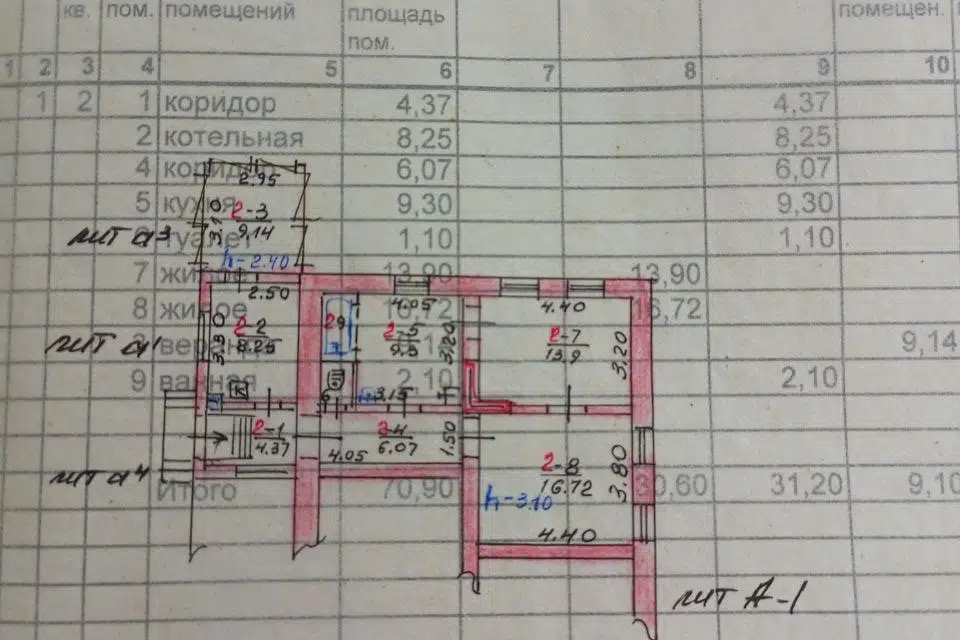 кв. пом. помещений площадь пом. помещен.
1 2 3 4 5 6 7 8 9 10
1 2 1 коридор 4,37 4,37
2 котельная 8,25 8,25
4 6,07 6,07
2.95
5 кухня 9,30 9,30
3.10 2-3 9.14
лит а³ туалет 1,10 1,10
h-2.40
7 13,90 13,90
2.50 4.05 4.40
8 жилое 16,72 16,72
3.30 2-2 8.25 29 2-5 9.3 3.20 2-7 13.9 3.20
лит а¹ 9,14
9 ванная 2,10 2,10
К 3.15
2-1 4.37 2-4 6.07 4.05 1.50
2-8 16.72 3.80
лит а⁴
Итого 70,90 30,60 31,20 9,10
h-3.10
4.40
лит А-1